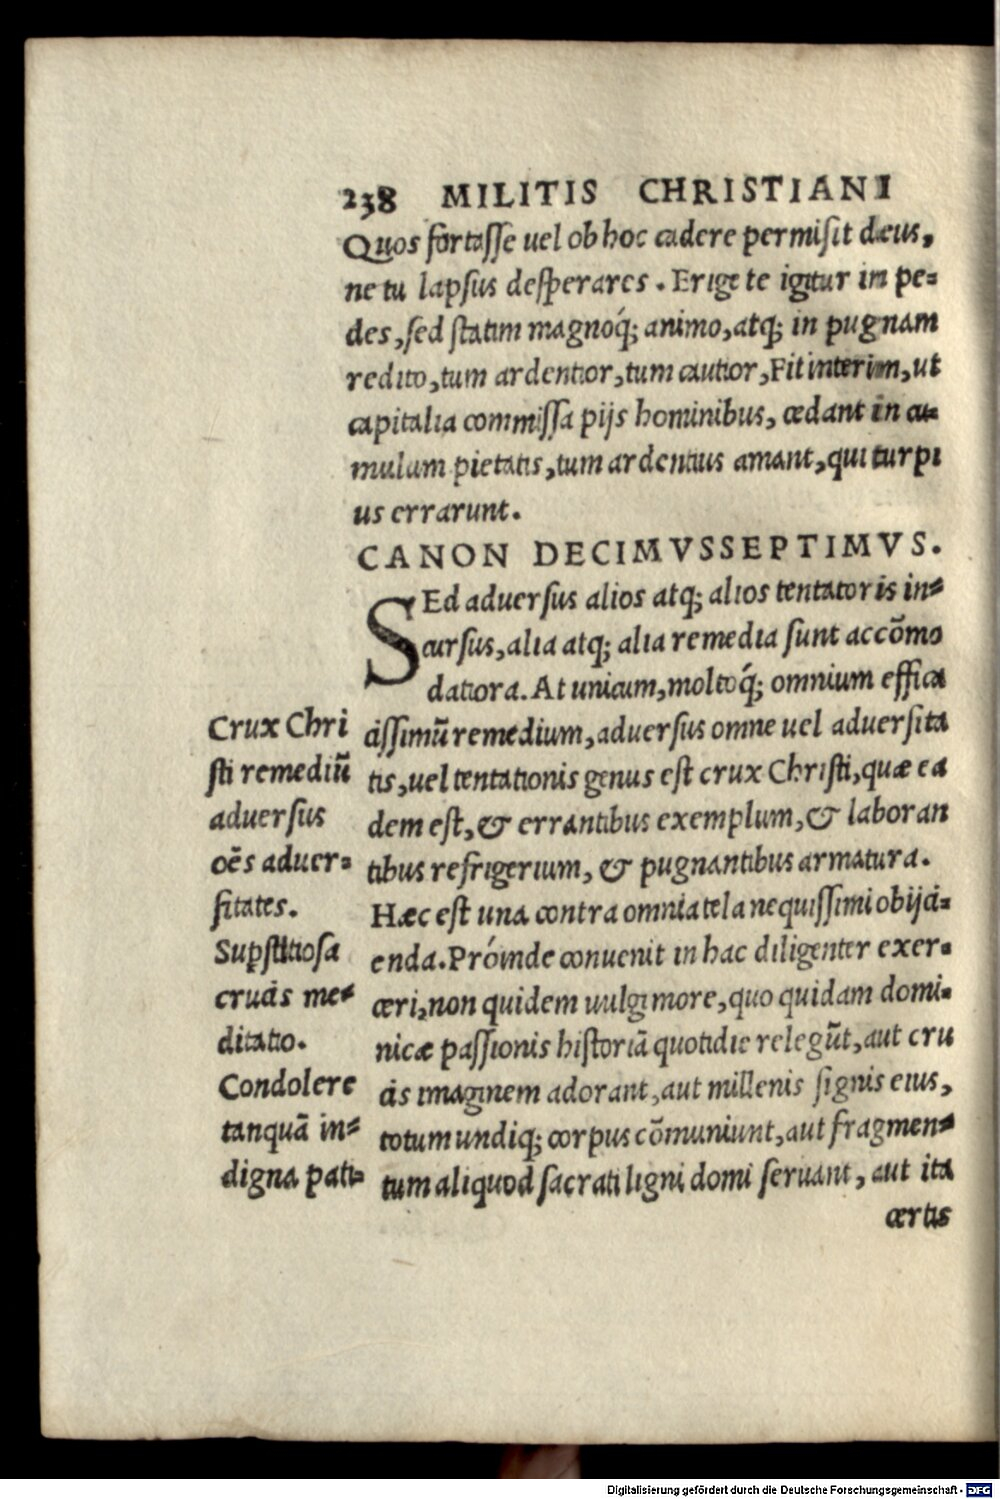 238 MILITIS CHRISTIANI
Quos fortasse uel ob hoc cadere permisit deus,
ne tu lapsus desperares. Erige te igitur in pe=
des, sed statim magnoq́; animo, atq; in pugnam
redito, tum ardentior, tum cautior, Fit interim, ut
capitalia commissa pijs hominibus, cedant in cu=
mulum pietatis, tum ardentius amant, qui turpi
us errarunt.
CANON DECIMVSSEPTIMVS.
SEd aduersus alios atq; alios tentatoris in=
cursus, alia atq; alia remedia sunt accōmo
datiora. At unicum, moltoq́; omnium effica
cissimū remedium, aduersus omne uel aduersita
tis, uel tentationis genus est crux Christi, quæ ea
dem est, & errantibus exemplum, & laboran
tibus refrigerium, & pugnantibus armatura.
Hæc est una contra omnia tela nequissimi obijci=
enda. Próinde conuenit in hac diligenter exer=
ceri, non quidem uulgi more, quo quidam domi=
nicæ passionis historiā quotidie relegūt, aut cru
cis imaginem adorant, aut millenis signis eius,
totum undiq; corpus cōmuniunt, aut fragmen=
tum aliquod sacrati ligni domi seruant, aut ita
certis
Crux Chri
sti remediū
aduersus
oēs aduer=
sitates.
Supstitiosa
crucis me=
ditatio.
Condolere
tanquā in=
digna pati=
Digitalisierung gefördert durch die Deutsche Forschungsgemeinschaft - DFG